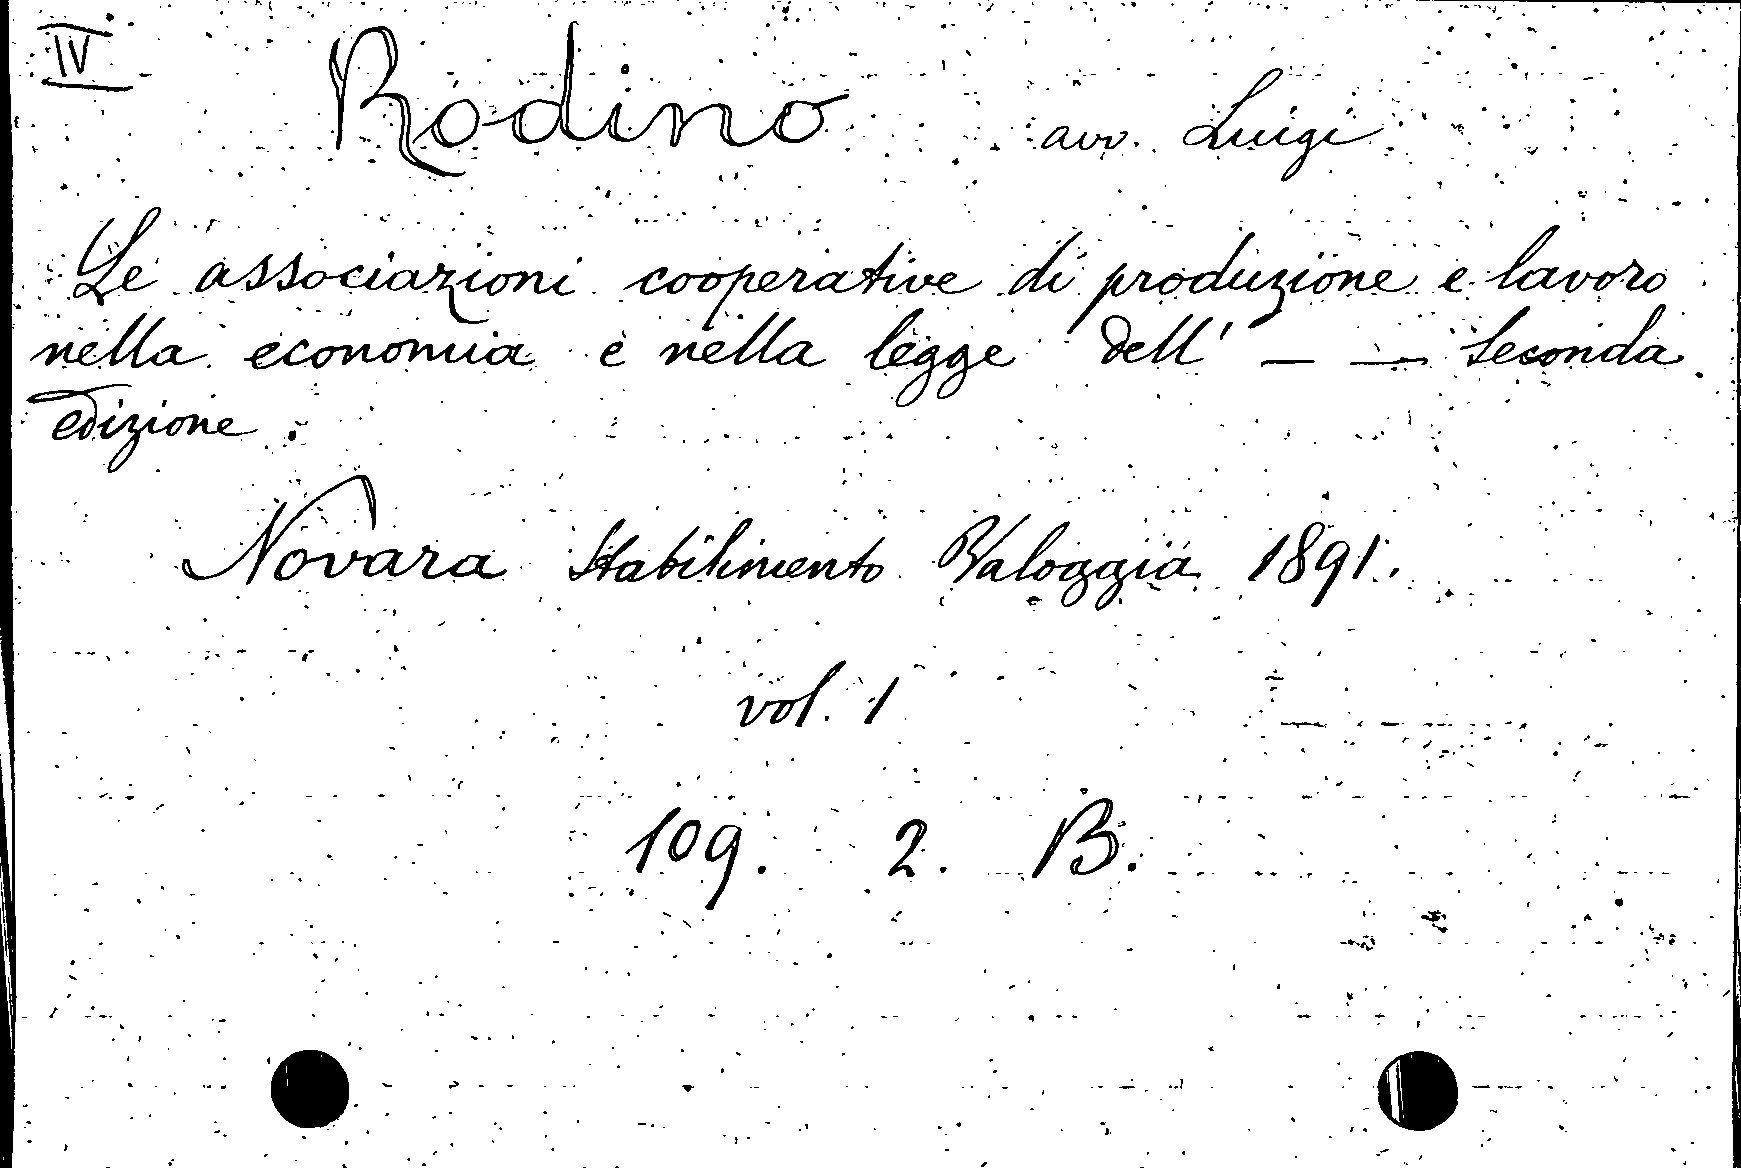 IV
Rodino avv. Luigi
Le associazioni cooperative di produzione e lavoro
nella economia e nella legge dell' — — Seconda
edizione.
Novara Stabilimento Valoggia 1891.
vol. 1
109. 2. B.